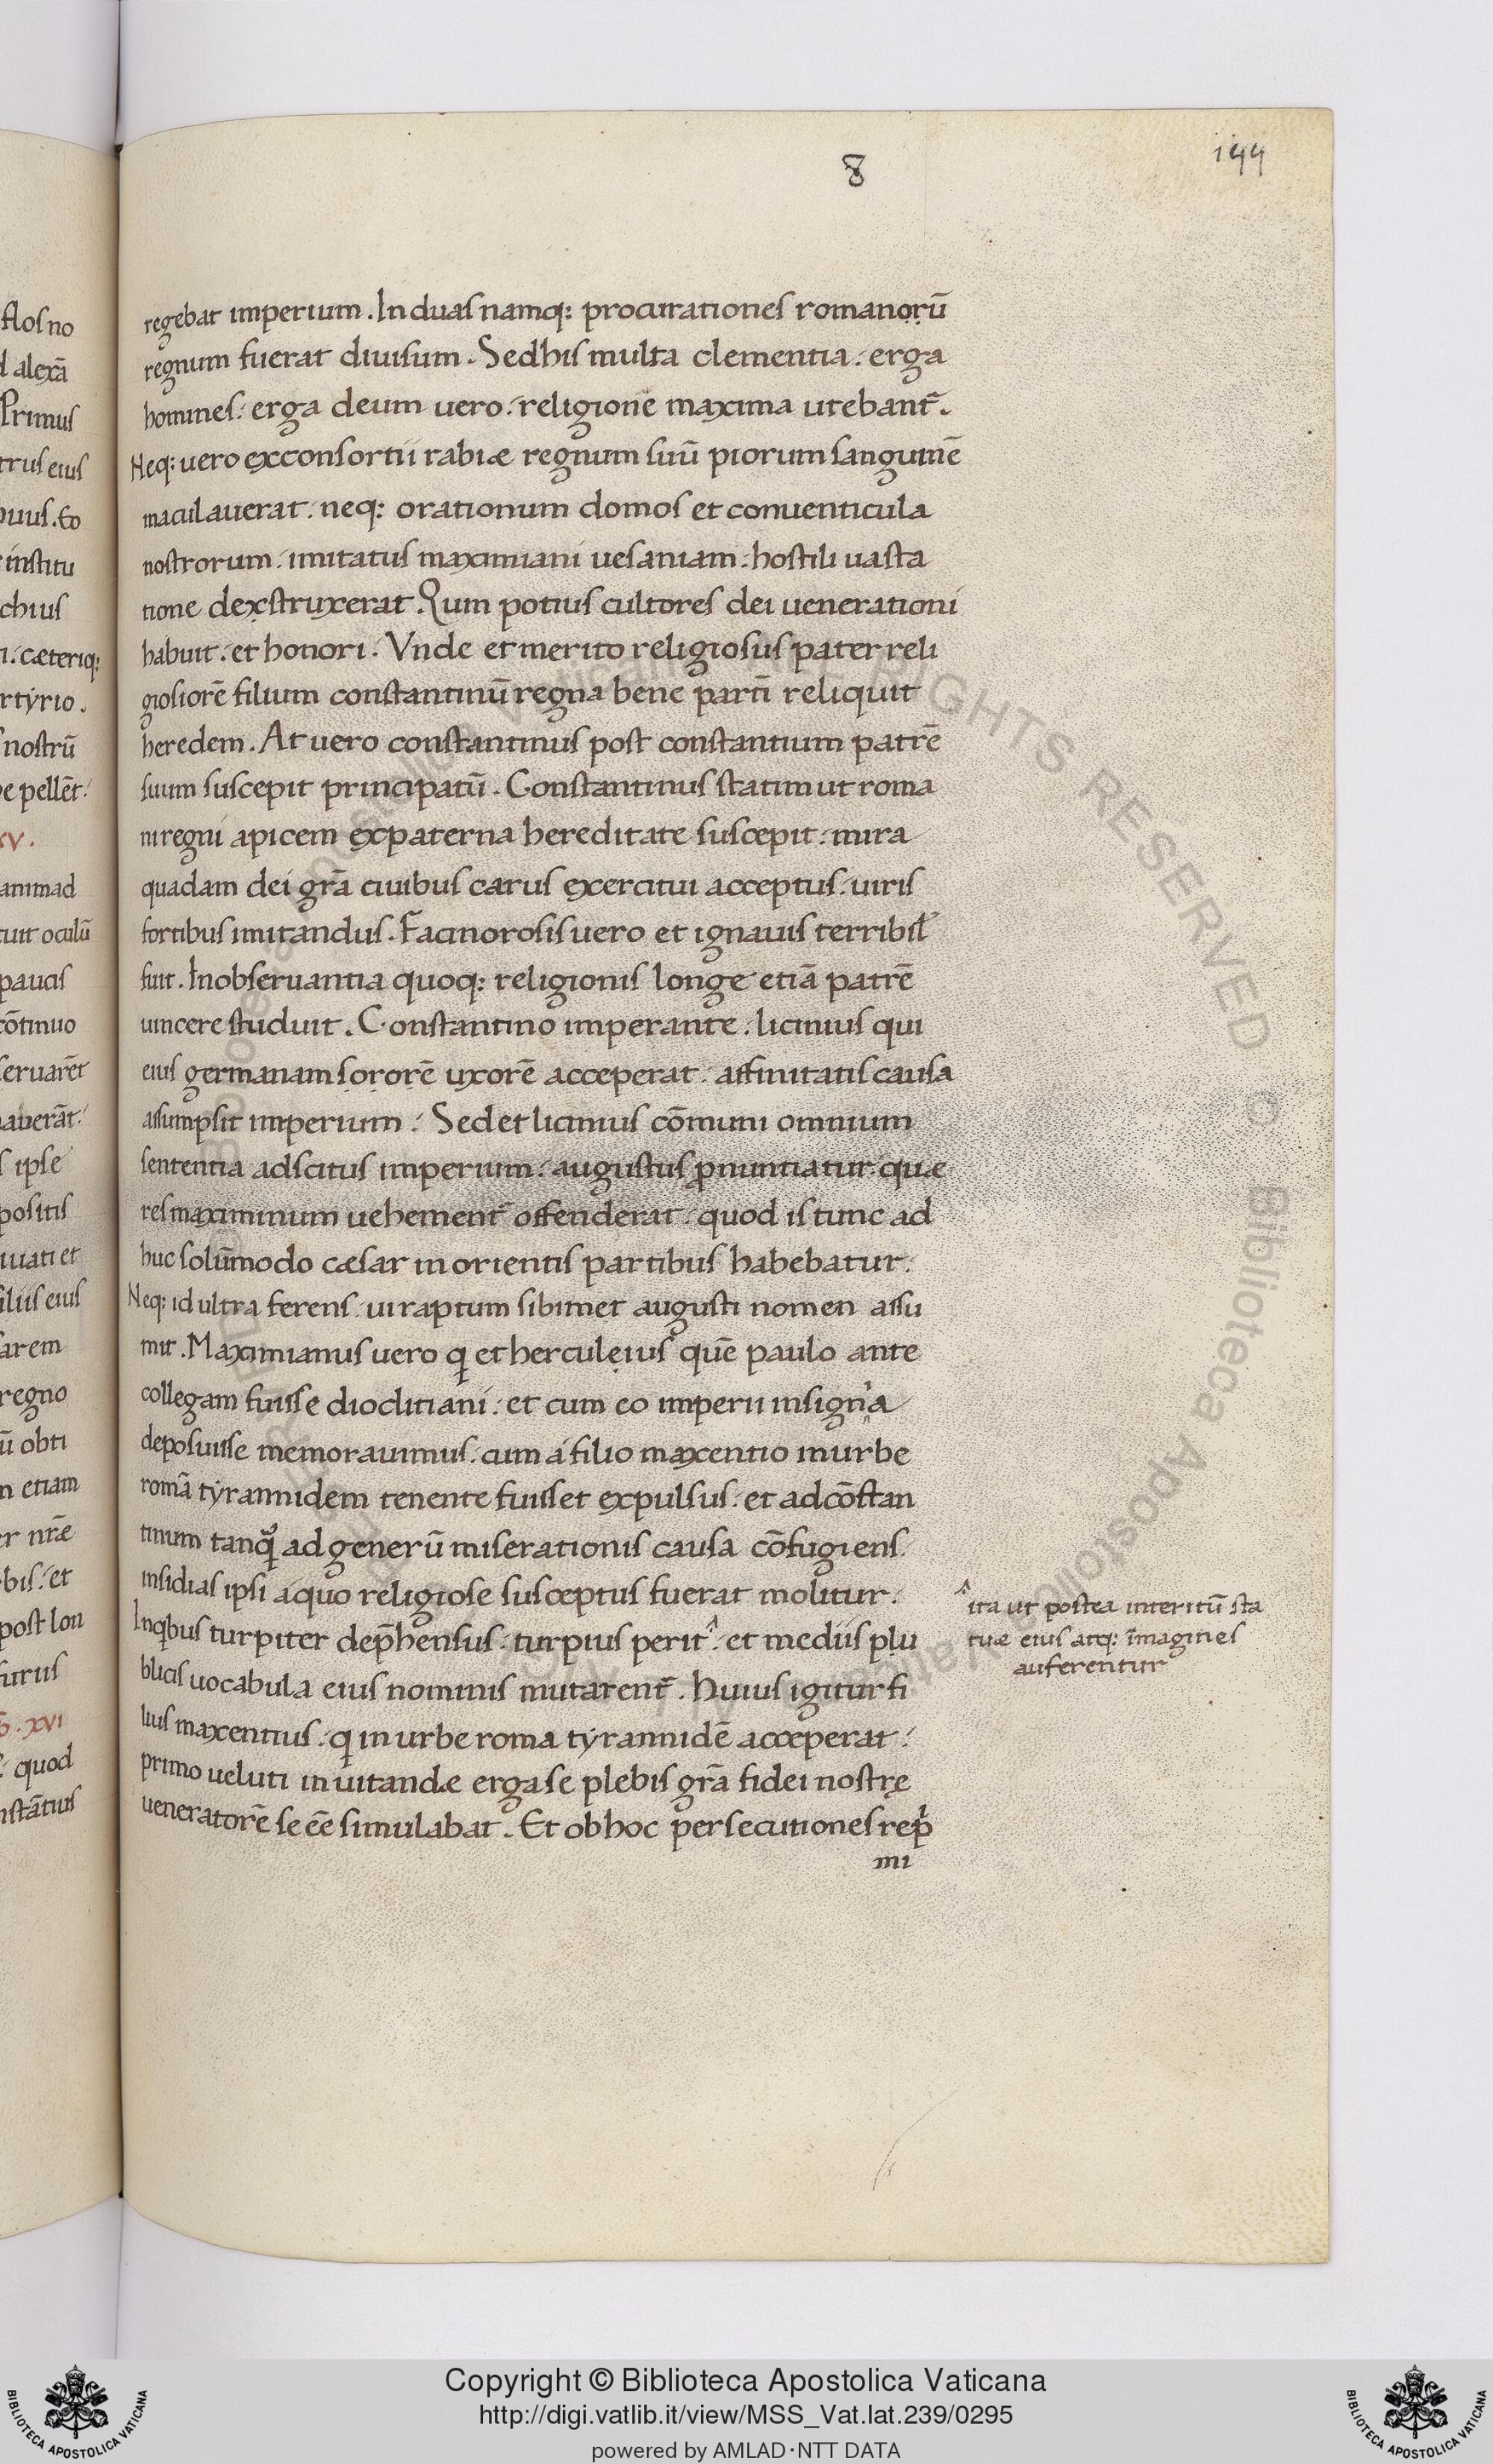 8
144
regebat imperium. In duas namq: procurationes romanorū
regnum fuerat diuisum. Sed his multa clementia erga
homines: erga deum uero religione maxima utebant᷑.
Neq: uero ex consortii rabiæ regnum suū piorum sanguinē
maculauerat. neq: orationum domos et conuenticula
nostrorum. imitatus maximiani uesaniam. hostili uasta
tione dexstruxerat. Qum potius cultores dei uenerationi
habuit. et honori. Vnde et merito religiosus pater reli
giosiorē filium constantinū regna bene partī reliquit
heredem. At uero constantinus post constantium patrē
suum suscepit principatū. Constantinus statim ut roma
ni regni apicem ex paterna hereditate suscepit. mira
quadam dei grā ciuibus carus exercitui acceptus. uiris
fortibus imitandus. Facinorosis uero et ignauis terribil᾿
fuit. In obseruantia quoq: religionis longe etiā patrē
uincere studuit. Constantino imperante. licinius qui
eius germanam sororē uxorē acceperat. affinitatis causa
assumpsit imperium. Sed et licinius cōmuni omnium
sententia adscitus imperium. augustus ꝓnuntiatur. quæ
res maximinum uehement᷑ offenderat. quod is tunc ad
huc solūmodo cæsar in orientis partibus habebatur.
Neq: id ultra ferens. ui raptum sibimet augusti nomen assu
mit. Maximianus uero q et herculeius quē paulo ante
collegam fuisse diocliciani. et cum eo imperii insignia
deposuisse memorauimus. cum a filio maxentio in urbe
romā tyrannidem tenente fuisset expulsus. et ad cōstan
tinum tanq̄ ad generū miserationis causa cōfugiens.
insidias ipsi a quo religiose susceptus fuerat molitur.
In qbus turpiter dep̄hensus. turpius perit. et mediis plu
ita ut postea interitū sta
tuæ eius atq: imagines
auferentur
blicis uocabula eius nominis mutarent᷑. Huius igitur fi
lius maxentius. q in urbe roma tyrannidē acceperat.
primo ueluti inuitandæ erga se plebis grā fidei nostrę
ueneratorē se eē simulabat. Et ob hoc persecutiones rep
mi
flos no
d alexā
Primus
trus eius
ouus. Eo
institu
chius
i. cæteriq:
rtyrio.
nostrū
e pellēt.
xv.
animad
tuit oculū
paucis
cōtinuo
seruarēt
auerāt.
s ipse
positis
iuati et
filiis eius
sarem
regno
ū obti
n etiam
er nrē
bis. et
post lon
furus
. xvi
quod
nstātius
© Biblioteca Apostolica Vaticana ALL RIGHTS RESERVED
Copyright © Biblioteca Apostolica Vaticana
http://digi.vatlib.it/view/MSS_Vat.lat.239/0295
powered by AMLAD·NTT DATA
BIBLIOTECA APOSTOLICA VATICANA
BIBLIOTECA APOSTOLICA VATICANA